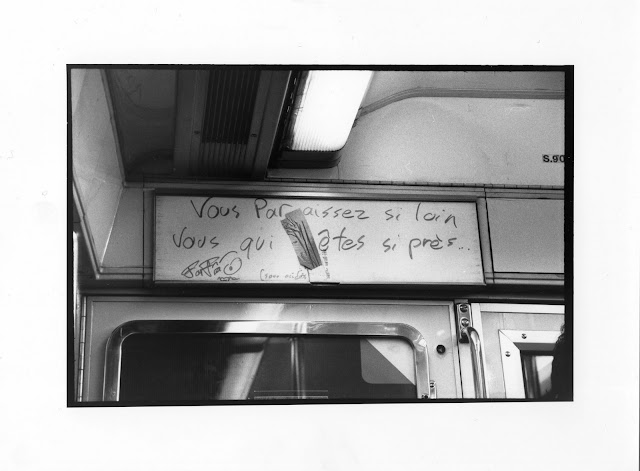 S.90
Vous Paraissez si loin
Vous qui êtes si près...